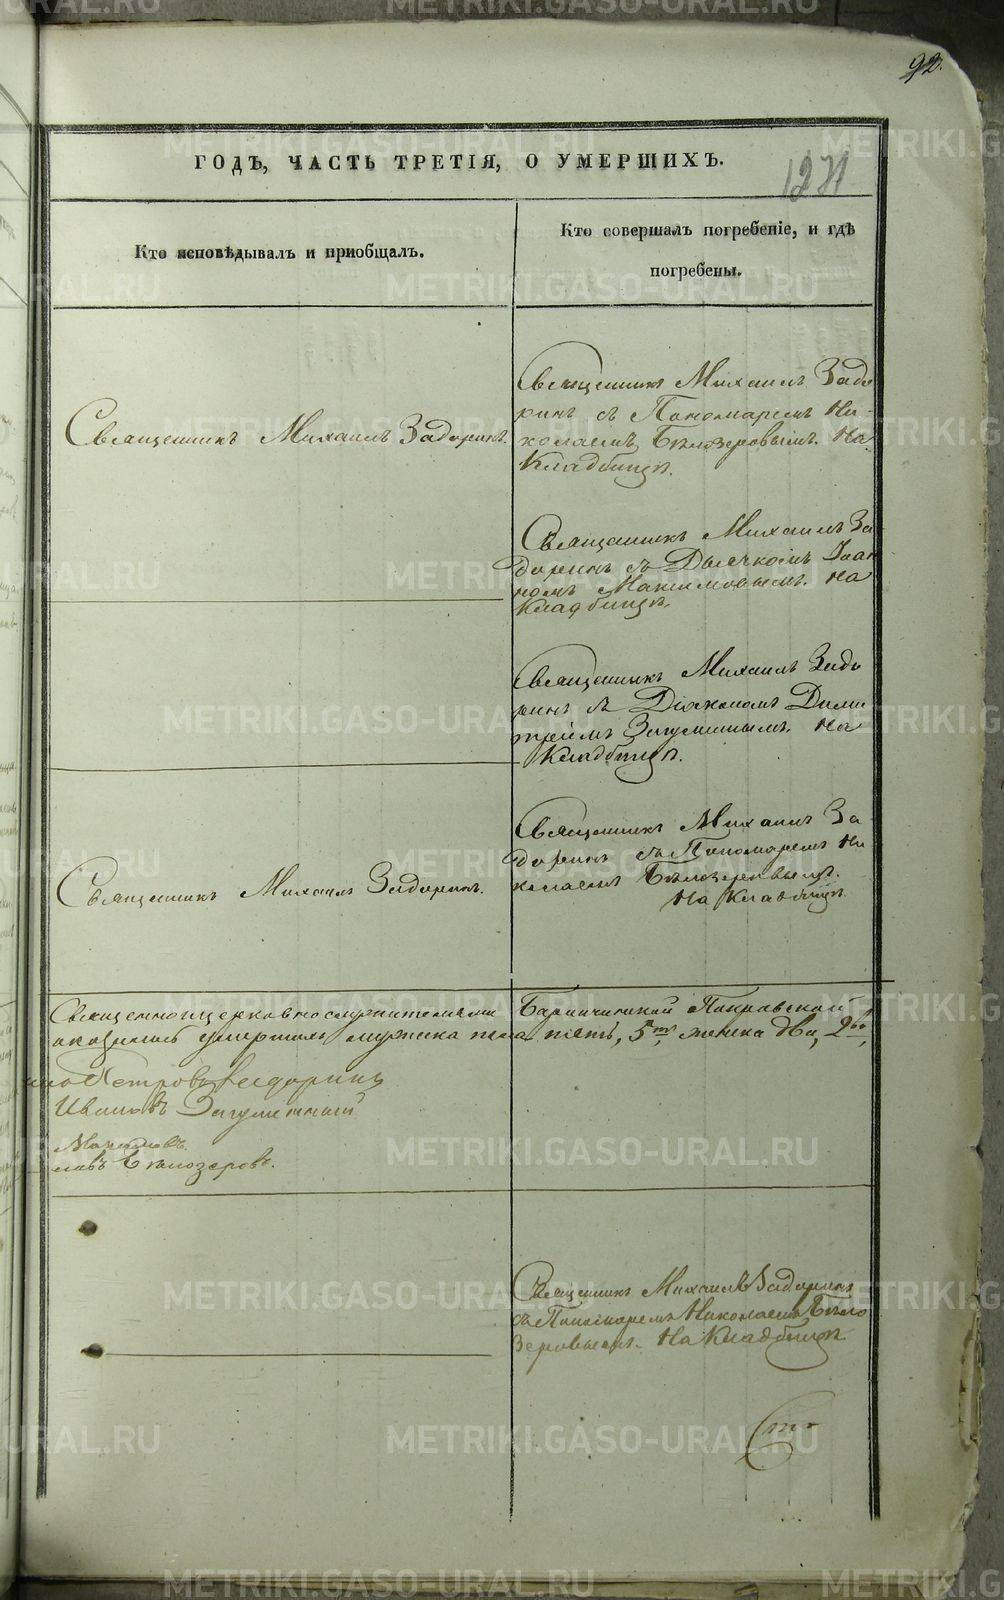 92.
1271
ГОДЪ, ЧАСТЬ ТРЕТІЯ, О УМЕРШИХЪ.
Кто исповѣдывалъ и приобщалъ.
Кто совершалъ погребеніе, и гдѣ
погребены.
Священникъ Михаилъ Задоринъ.
Священникъ Михаилъ Задо
ринъ съ Пономаремъ Ни-
колаемъ Бѣлозеровымъ. На
Кладбищѣ.
Священникъ Михаилъ За-
доринъ съ Дьячкомъ Іоан
номъ Максимовымъ. На
Кладбищѣ.
Священникъ Михаилъ Задо
ринъ съ Діакономъ Дими
тріемъ Загуменнымъ. На
Кладбищѣ.
Священникъ Михаилъ Задоринъ.
Священникъ Михаилъ За-
доринъ съ Пономаремъ Ни
колаемъ Бѣлозеровымъ.
На Кладбищѣ.
Священноцерковнослужителями Покровской
оказалось умершихъ мужеска пола пять, 5ть, женска два, 2ва,
Петровъ Задоринъ
Ивановъ Загуменный
Максимовъ.
Бѣлозеровъ.
Священникъ Михаилъ Задоринъ
съ Пономаремъ Николаемъ Бѣло
зеровымъ. На Кладбищѣ
METRIKI.GASO-URAL.RU